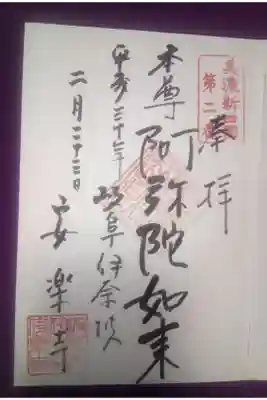 美濃新四国
第二
奉拝
本尊阿弥陀如来
平成三十年 岐阜伊奈波
二月二十三日 安楽寺